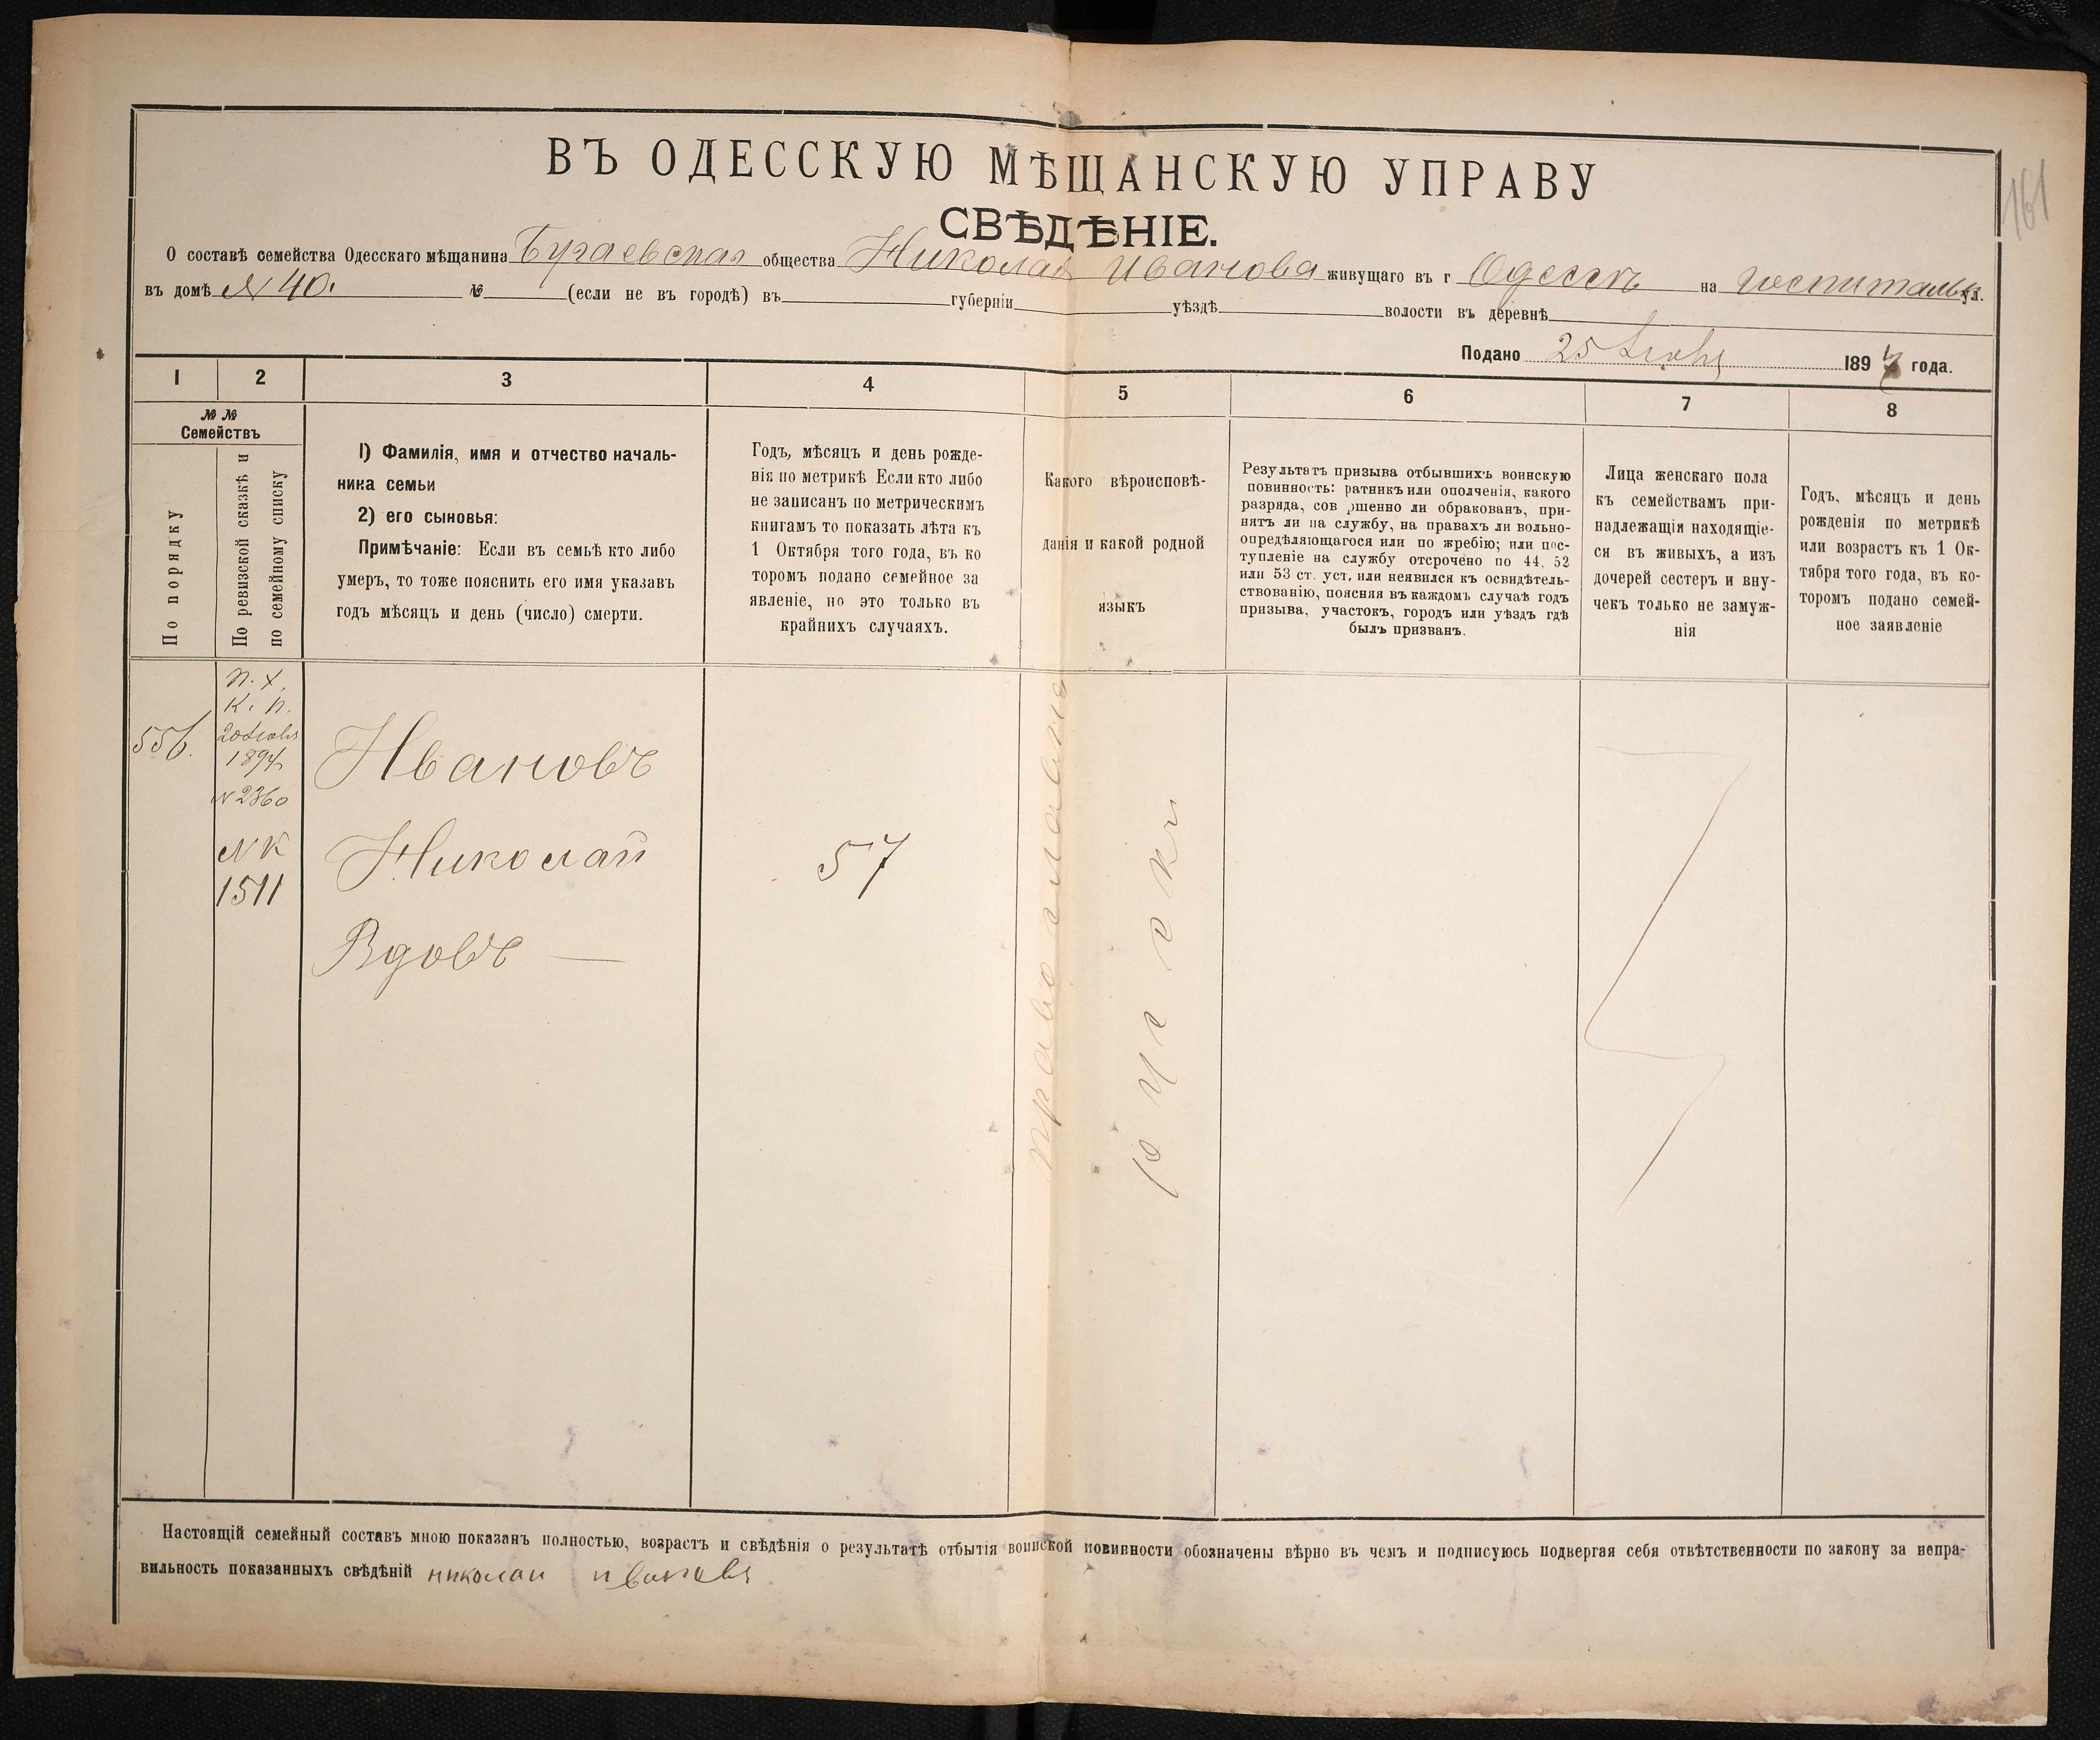 161
ВЪ ОДЕССКУЮ МѢЩАНСКУЮ УПРАВУ
СВѢДѢНІЕ.
О составѣ семейства Одесскаго мѣщанина Бугаевская общества Николая Иванова живущаго въ г Одессѣ на Госпитальн ул.
въ домѣ № 40. № (если не въ городѣ) въ губерніи уѣздѣ волости въ деревнѣ
Подано 25 189 года.
1 2 3 4 5 6 7 8
№ №
Семействъ
По порядку
По ревизской сказкѣ и
по семейному списку
1) Фамилія, имя и отчество началь-
ника семьи
2) его сыновья:
Примѣчаніе: Если въ семьѣ кто либо
умеръ, то тоже пояснить его имя указавъ
годъ мѣсяцъ и день (число) смерти.
Годъ, мѣсяцъ и день рожде-
нія по метрикѣ Если кто либо
не записанъ по метрическимъ
книгамъ то показать лѣта къ
1 Октября того года, въ ко
торомъ подано семейное за
явленіе, но это только въ
крайнихъ случаяхъ.
Какого вѣроисповѣ-
данія и какой родной
языкъ
Результатъ призыва отбывшихъ воинскую
повинность: ратникъ или ополченія, какого
разряда, сов ршенно ли обракованъ, при-
нятъ ли на службу, на правахъ ли вольно-
опредѣляющагося или по жребію; или пос-
тупленіе на службу отсрочено по 44, 52
или 53 ст. уст, или неявился къ освидѣтель-
ствованію, поясняя въ каждомъ случаѣ годъ
призыва, участокъ, городъ или уѣздъ гдѣ
былъ призванъ.
Лица женскаго пола
къ семействамъ при-
надлежащія находящіе-
ся въ живыхъ, а изъ
дочерей сестеръ и вну-
чекъ только не замуж-
нія
Годъ, мѣсяцъ и день
рожденія по метрикѣ
или возрастъ къ 1 Ок-
тября того года, въ ко-
торомъ подано семей-
ное заявленіе
556.
П. Х.
К. П.
1894
№ 2360
№ К
1511
Ивановъ
Николай
Вдовъ —
57
православно
русски
Настоящій семейный составъ мною показанъ полностью, возрастъ и свѣдѣнія о результатѣ отбытія воинской повинности обозначены вѣрно въ чемъ и подписуюсь подвергая себя отвѣтственности по закону за непра-
вильность показанныхъ свѣдѣній николаи ивановъ